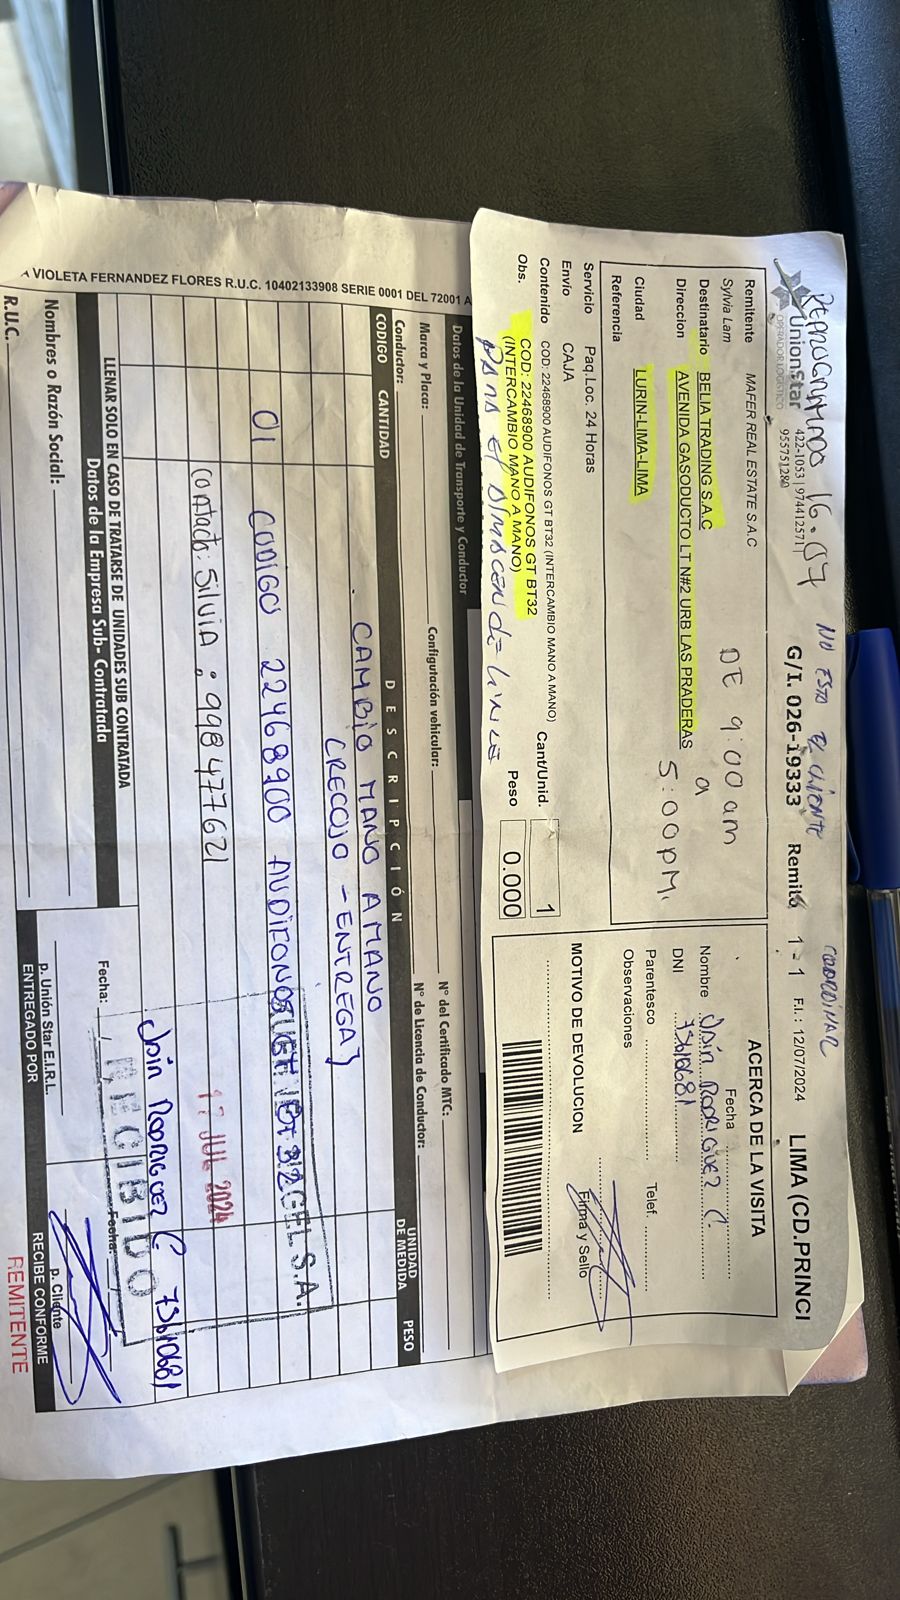 REPROGRAMADO 16.07
NO ESTA EL CLIENTE
COORDINAR
UnionStar
OPERADOR LOGISTICO
422-1053 | 974412571 |
955751280
G/I. 026-19333 Remito 1 - 1 F.I.: 12/07/2024 LIMA (CD.PRINCI
Remitente MAFER REAL ESTATE S.A.C
Sylvia Lam
Destinatario BELIA TRADING S.A.C
Direccion AVENIDA GASODUCTO LT N#2 URB LAS PRADERAS
Ciudad LURIN-LIMA-LIMA
Referencia
DE 9:00 am
a
5:00 pm.
Servicio Paq.Loc. 24 Horas
Envio CAJA
Contenido COD: 22468900 AUDIFONOS GT BT32 (INTERCAMBIO MANO A MANO)
Obs. COD: 22468900 AUDIFONOS GT BT32
(INTERCAMBIO MANO A MANO)
Cant/Unid. 1
Peso 0.000
ACERCA DE LA VISITA
Fecha
Nombre Jain Rodriguez C.
DNI 73610681
Parentesco Telef.
Observaciones
Firma y Sello
MOTIVO DE DEVOLUCION
VIOLETA FERNANDEZ FLORES R.U.C. 10402133908 SERIE 0001 DEL 72001 A
Datos de la Unidad de Transporte y Conductor
Marca y Placa: Configutación vehicular: N° del Certificado MTC:
Conductor: N° de Licencia de Conductor:
CODIGO CANTIDAD DESCRIPCIÓN UNIDAD DE MEDIDA PESO
CAMBIO MANO A MANO
(RECOJO - ENTREGA)
01 CODIGO 22468900 AUDIFONOS GT BT32
GEL S.A.
Contacto: Silvia : 998477621
17 JUL 2024
Jain Rodriguez C 73610681
RECIBIDO
Fecha:
LLENAR SOLO EN CASO DE TRATARSE DE UNIDADES SUB CONTRATADA
Datos de la Empresa Sub- Contratada
Nombres o Razón Social:
R.U.C.
Fecha: / /
p. Unión Star E.I.R.L.
ENTREGADO POR
p. Cliente
RECIBE CONFORME
REMITENTE